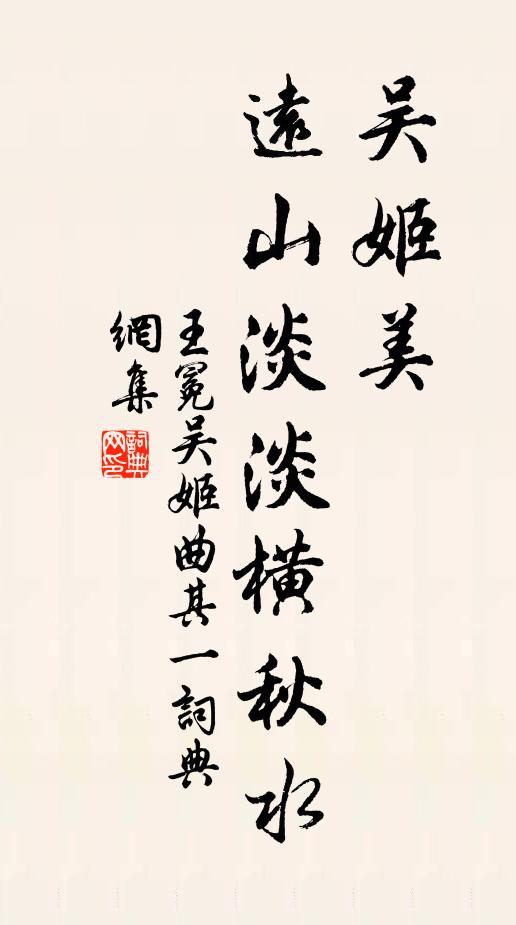 吴姬美
遠山淡淡橫秋水
王冕吴姬曲其一詞典
網集
詞典
网印